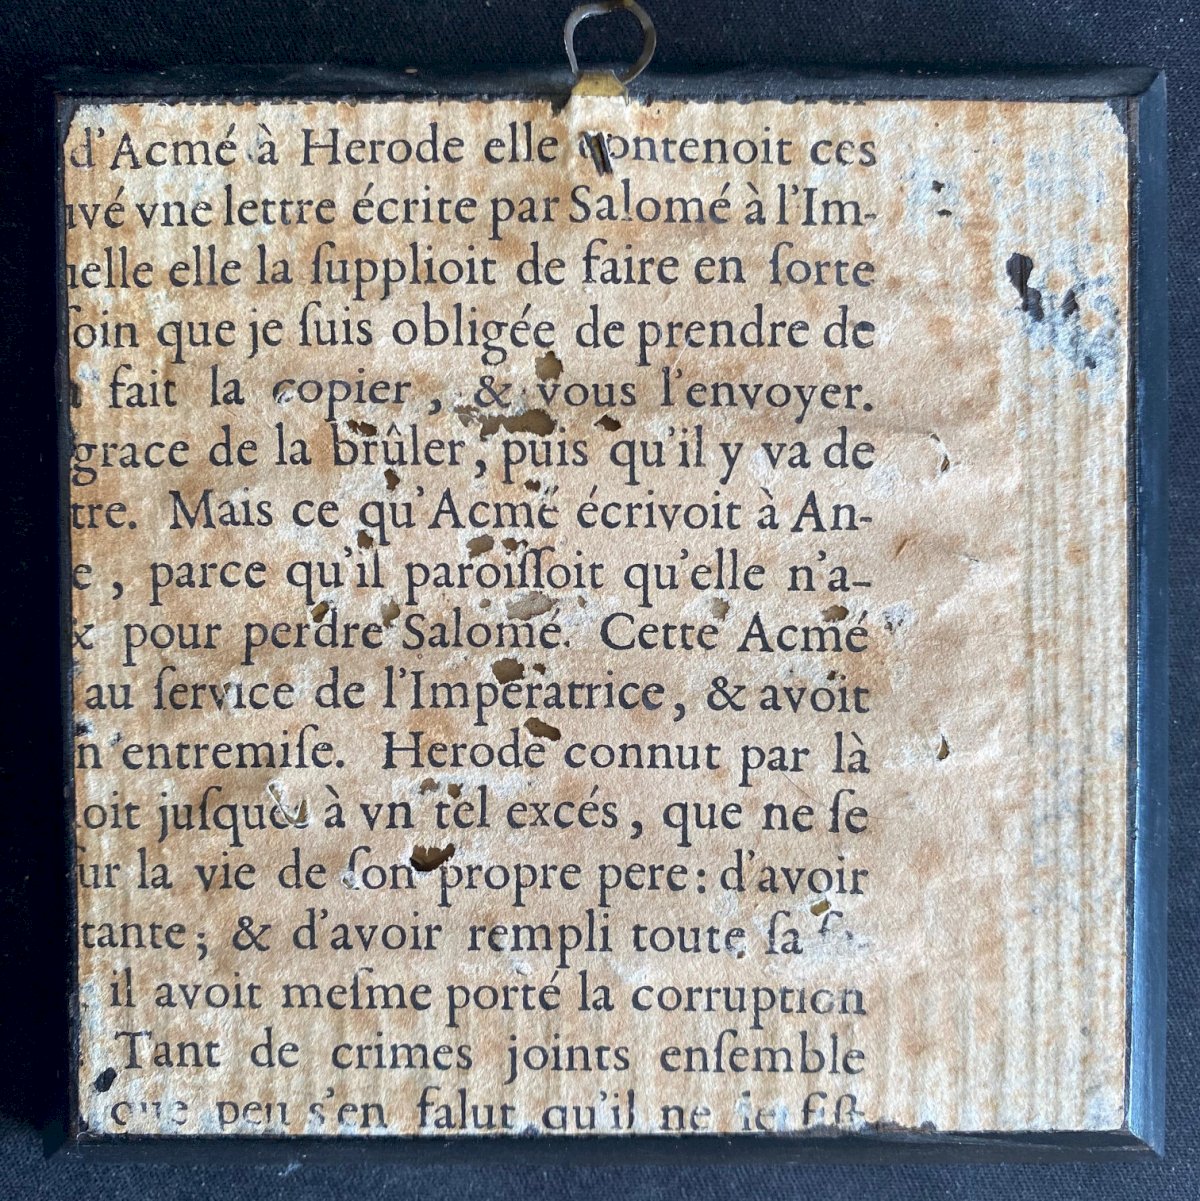 d'Acmé à Herode elle contenoit ces
vne lettre écrite par Salomé à l'Im-
elle la ſupplioit de faire en ſorte
ſoin que je ſuis obligée de prendre de
fait la copier, & vous l'envoyer.
grace de la brûler, puis qu'il y va de
tre. Mais ce qu'Acmé écrivoit à An-
e, parce qu'il paroiſſoit qu'elle n'a-
pour perdre Salomé. Cette Acmé
au ſervice de l'Imperatrice, & avoit
n entremiſe. Herode connut par là
oit juſques à vn tel excés, que ne ſe
ur la vie de ſon propre pere: d'avoir
tante; & d'avoir rempli toute ſa
il avoit meſme porté la corruption
Tant de crimes joints enſemble
que peu s'en falut qu'il ne